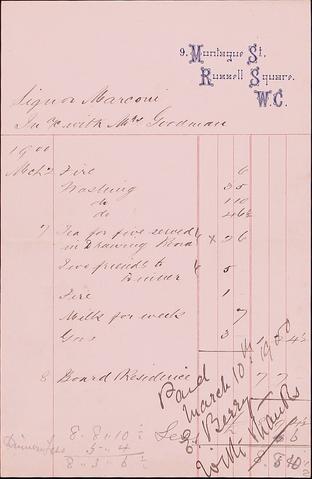 9. Montague St.
Russell Square.
W.C.
Signor Marconi
In % with Mrs Goodman
1900
Mch 2 Fire 6
Washing 3 5
do 1 10
do 4 6½
7 Tea for five served
in Drawing Room x 2 6
Two friends to
Dinner 5
Fire 1
Milk for week 7
Gas 3
8 Board Residence 7 7
Paid
March 10th 1900
Berry
with thanks
8 - 8 - 10½
5 - 4
8 - 3 - 6½
8 8 10½